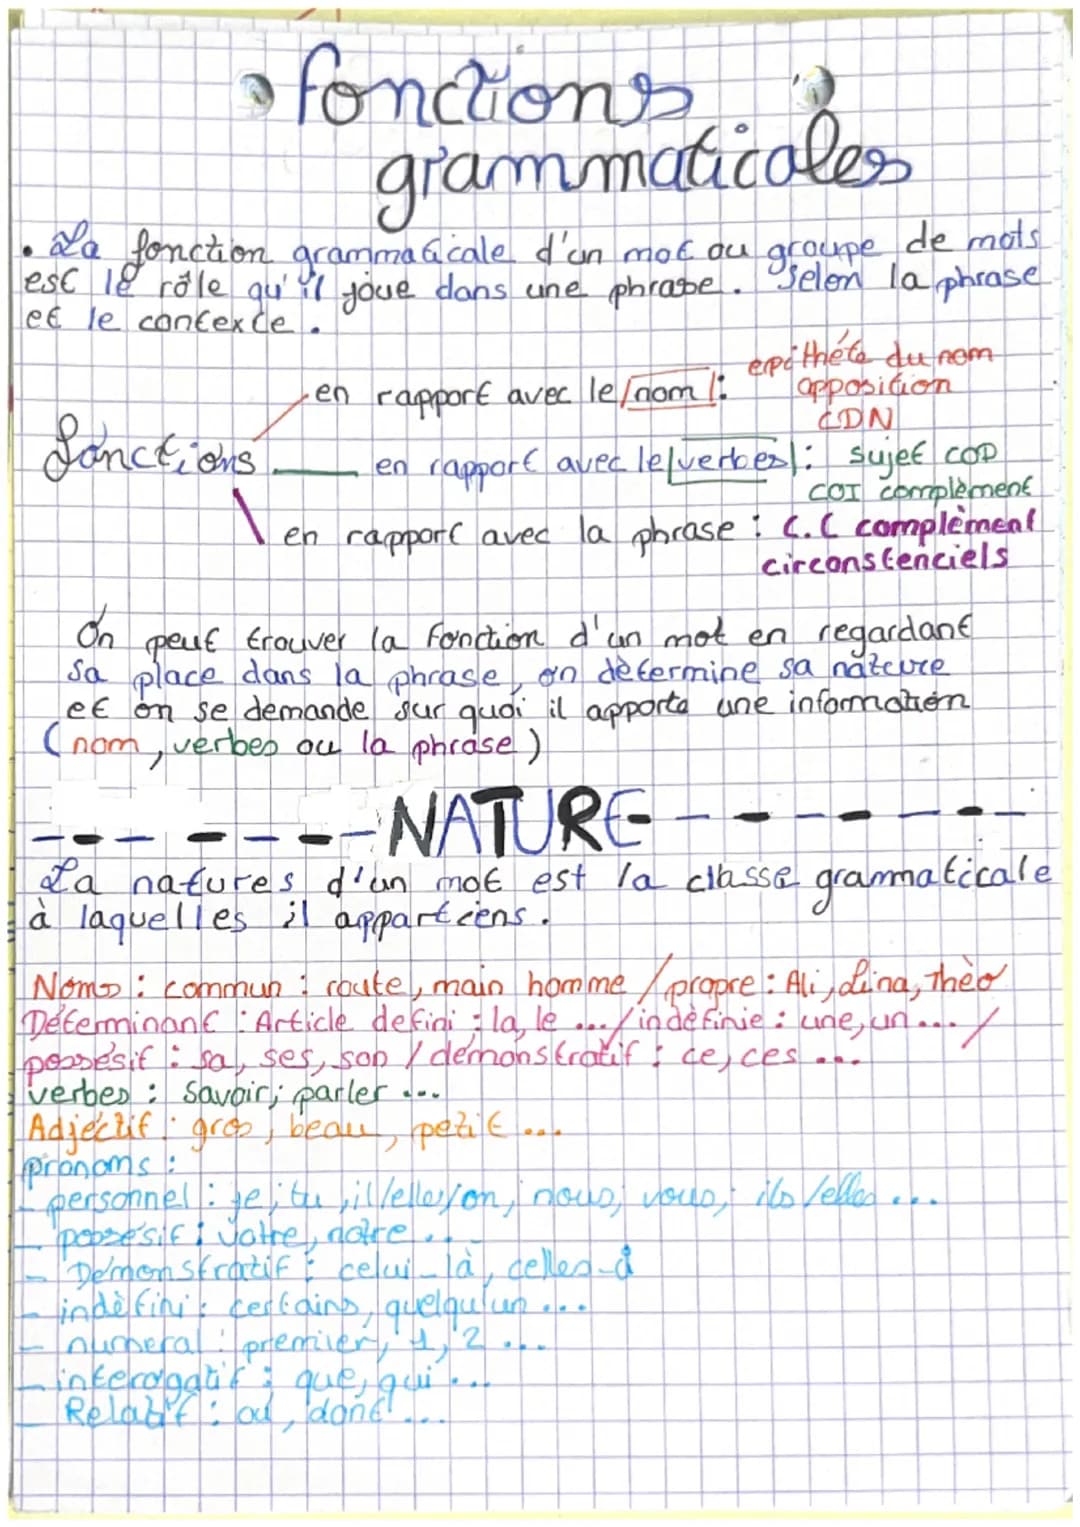 fonctions
grammaticales
. La fonction grammaticale d'un mot ou groupe de mots
est le rôle qu'il joue dans une phrase. Selon la phrase
et le contexte.
en rapport avec le nom : epithéte du nom
apposition
CDN
fonctions en rapport avec le verbes : sujet COD
COI complèment
en rapport avec la phrase : C.C complèment
circonstenciels
On peut trouver la fonction d'un mot en regardant
sa place dans la phrase, on dètermine sa nateure
et on se demande sur quoi il apporte une information
(nom, verbes ou la phrase)
-------NATURE--------
La natures d'un mot est la classe grammaticale
à laquelles il appartiens.
Noms : commun : route, main homme / propre : Ali, Lina, Thèo
Déterminant : Article defini : la, le ... / indèfinie : une, un ... /
possésif : sa, ses, son / démonstratif : ce, ces ...
verbes : savoir; parler ...
Adjéctif : gros, beau, petit ...
pronoms :
- personnel : je; tu, il/elle/on; nous; vous; ils/elles ...
- possésif : votre, notre ...
- Démonstratif : celui-là, celles-ci
- indèfini : certains, quelqu'un ...
- numeral : premier, 1, 2 ...
- interogatif : que, qui ...
- Relatif : où, dont ...